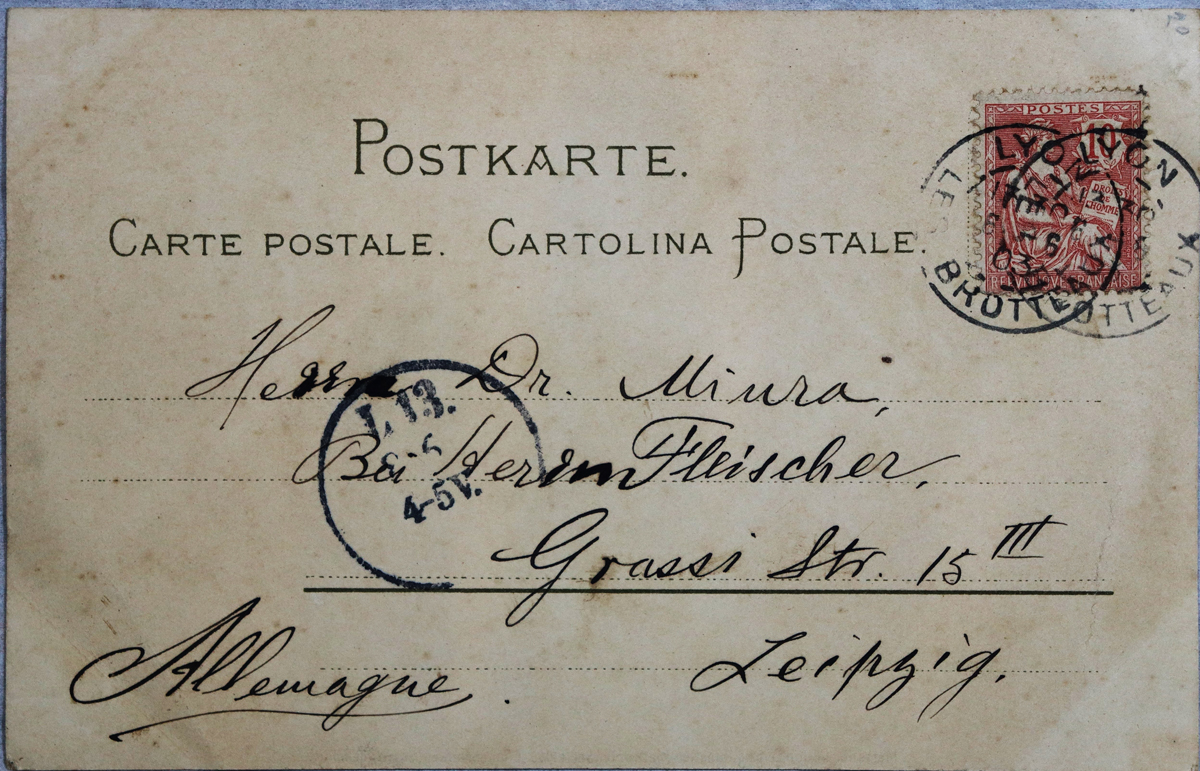 POSTKARTE.
CARTE POSTALE. CARTOLINA POSTALE.
POSTES
10
DROITS DE L'HOMME
REPUBLIQUE FRANÇAISE
LYON
LES BROTTEAUX
LYON
OTTEAUX
Herrn Dr. Miura,
Bei Herrn Fleischer,
Grassi Str. 15 III
Leipzig.
Allemagne.
L 13.
4-5V.